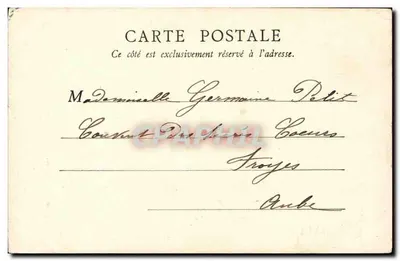 CARTE POSTALE
Ce côté est exclusivement réservé à l'adresse.
Mademoiselle Germaine Petit
Couvent des Coeurs
Troyes
Aube